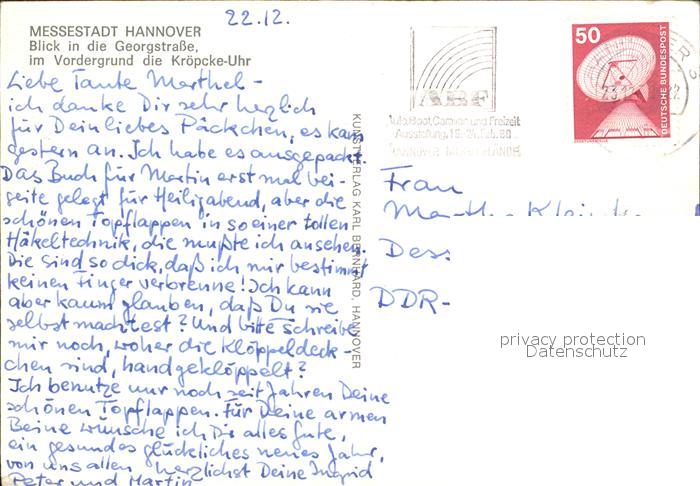 22.12.
MESSESTADT HANNOVER
Blick in die Georgstraße,
im Vordergrund die Kröpcke-Uhr
Liebe Tante Marthel -
ich danke Dir sehr herzlich
für Dein liebes Päckchen, es kam
gestern an. Ich habe es ausgepackt.
Das Buch für Martin erst mal bei-
seite gelegt für Heiligabend, aber die
schönen Topflappen in so einer tollen
Häkeltechnik, die mußte ich ansehen.
Die sind so dick, daß ich mir bestimmt
keinen Finger verbrenne! Ich kann
aber kaum glauben, daß Du sie
selbst machtest? Und bitte schreibe
mir noch, woher die Klöppeldeck-
chen sind, handgeklöppelt?
Ich benutze nur noch seit Jahren Deine
schönen Topflappen. Für Deine armen
Beine wünsche ich Dir alles Gute,
ein gesundes glückliches neues Jahr,
von uns allen herzlichst Deine Ingrid
Peter und Martin
KUNSTVERLAG KARL BERNHARD, HANNOVER
ABF
Auto, Boot, Camping und Freizeit
Ausstellung, 16.-24. Feb. 80
HANNOVER MESSEGELÄNDE
50
DEUTSCHE BUNDESPOST
Frau
Dess
DDR-
privacy protection
Datenschutz